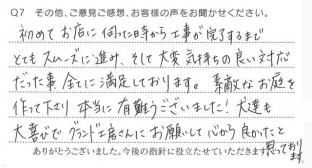 Q7 その他、ご意見ご感想、お客様の声をお聞かせください。
初めてお店に伺った日時から工事が完了するまで
とてもスムーズに進み、そして大変気持ちの良い対応
だった事全てに満足しております。素敵なお庭を
作って下さり本当に有難うございました!犬達も
大喜びでグランド工房さんにお願いして心から良かったと
思っております。
ありがとうございました。今後の指針に役立たせていただきます。